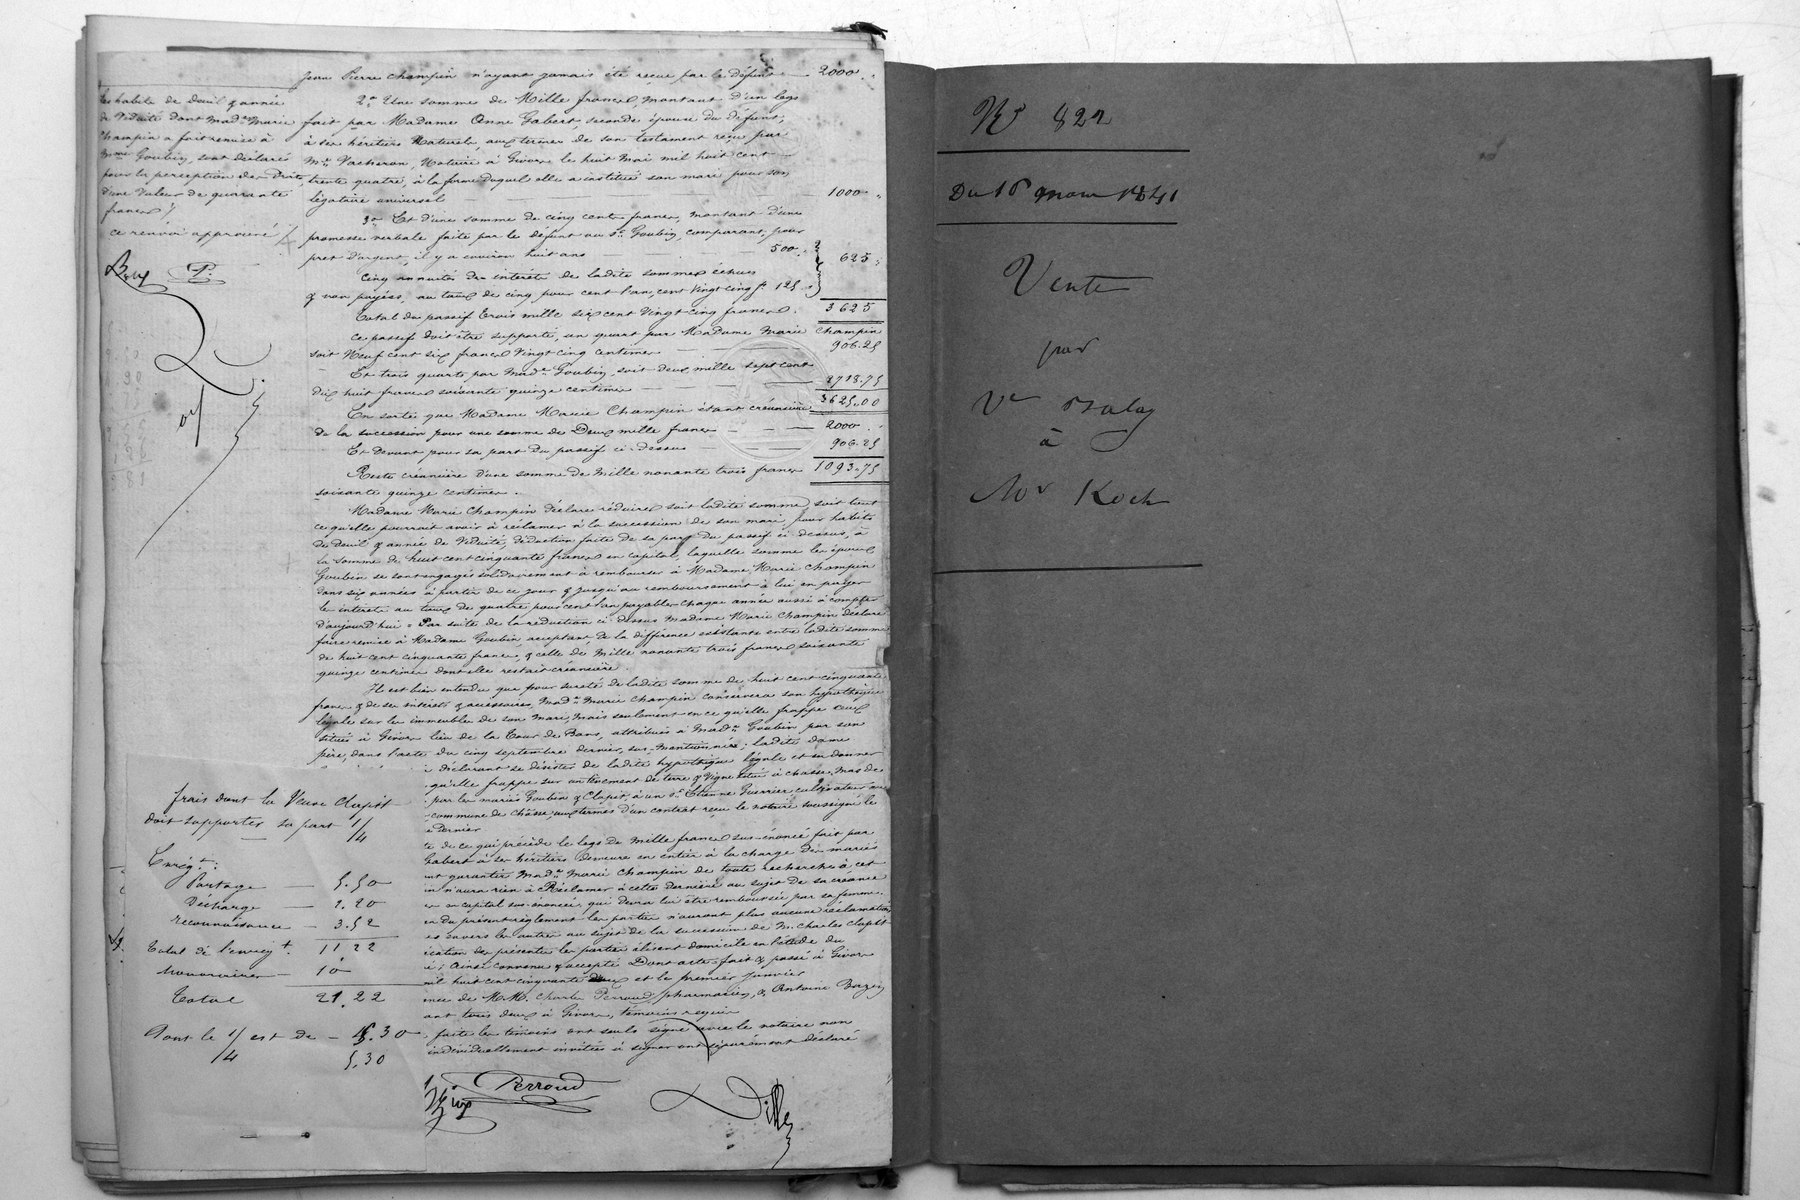 Jean Pierre Champin n'ayant jamais été reçue par le défunt — 2000 "
2° Une somme de Mille francs, montant d'un legs
fait par Madame Anne Gabert, seconde épouse du défunt,
à ses héritiers Naturels, aux termes de son testament reçu par
Me Vacheron, Notaire à Givors le huit Mai mil huit cent
trente quatre, à la forme duquel elle a institué son mari pour son
légataire universel — 1000 "
3° Et d'une somme de cinq cents francs, montant d'une
promesse verbale faite par le défunt au Sr Goubin, comparant, pour
prêt d'argent, il y a environ huit ans — 500 "
Cinq annuités des intérêts de ladite somme échues
& non payées, au taux de cinq pour cent l'an, cent vingt cinq f. 125 "
625 "
Total du passif trois mille six cent vingt cinq francs. 3625
Ce passif doit être supporté, un quart par Madame Marie Champin
soit Neuf cent six francs vingt cinq centimes — 906.25
Et trois quarts par Made Goubin, soit deux mille sept cent
dix huit francs soixante quinze centimes — 2718.75
3625.00
En sorte que Madame Marie Champin étant créancière
de la succession pour une somme de Deux mille francs — 2000
Et Devant pour sa part du passif ci-dessus — 906.25
Reste créancière d'une somme de Mille nonante trois francs 1093.75
soixante quinze centimes.
Madame Marie Champin déclare réduire soit ladite somme, soit tout
ce qu'elle pourrait avoir à réclamer à la succession de son mari, pour habits
de deuil & année de Viduité, déduction faite de sa part du passif ci-dessus, à
la somme de huit cent cinquante francs en capital, laquelle somme les époux
Goubin se sont engagés solidairement à rembourser à Madame Marie Champin
dans six années à partir de ce jour & jusqu'au remboursement à lui en payer
les intérêts au taux de quatre pour cent l'an payables chaque année aussi à compter
d'aujourd'hui = Par suite de la réduction ci-dessus Madame Marie Champin déclare
faire remise à Madame Goubin acceptant de la différence existante entre ladite somme
de huit cent cinquante francs, & celle de Mille nonante trois francs soixante
quinze centimes dont elle restait créancière.
Il est bien entendu que pour sureté de ladite somme de huit cent cinquante
francs & de ses intérêts & accessoires, Made Marie Champin conservera son hypothèque
légale sur les immeubles de son Mari, mais seulement en ce qu'elle frappe ceux
situés à Givors lieu de la Tour de Bans, attribués à Made Goubin par son
père, dans l'acte du cinq septembre dernier, sus-mentionné; ladite dame
déclarant se désister de ladite hypothèque légale et en donner
qu'elle frappe sur un tènement de terre & Vigne situé à Chasse, mas de
par les mariés Goubin & Clapit, à un Sr Etienne Guerrier cultivateur au
commune de Chasse, aux termes d'un contrat reçu le notaire soussigné le
e dernier
te de ce qui précède le legs de Mille francs sus-énoncé fait par
Gabert à ses héritiers demeure en entier à la charge des mariés
nt garantir Made Marie Champin de toute recherche à cet
in n'aura rien à Réclamer à cette dernière au sujet de sa créance
en capital sus-énoncée qui devra lui être remboursée par sa femme.
en du présent règlement les parties n'auront plus aucune réclamation
es envers les autres au sujet de la succession de M. Charles Clapit
écution des présentes les parties élisent domicile en l'étude du
é; Ainsi convenu & accepté Dont acte: fait & passé à Givors
mil huit cent cinquante deux et le premier janvier
ence de M.M. Charles Perroud, pharmacien, & Antoine Bazin
ant tous deux à Givors, témoins requis
faite les témoins ont seuls signé avec le notaire non
individuellement invitées à signer ont séparément déclaré
Perroud
Les habits de deuil & année
de Viduité dont Made Marie
Champin a fait remise à
Mme Goubin, sont déclarés
pour la perception des droits,
d'une valeur de quarante
francs /
ce renvoi approuvé /
P.
frais dont la Veuve Clapit
doit supporter sa part 1/4
Enregt:
Partage — 5.50
Décharge — 2.20
reconnaissance — 3.52
Total de l'enregt. 11.22
honoraires — 10
Total 21.22
Dont le 1/4 est de — 5.30
5.30
No 822
Du 16 mars 1841
Vente
par
Ve Balay
à
Mr Koch